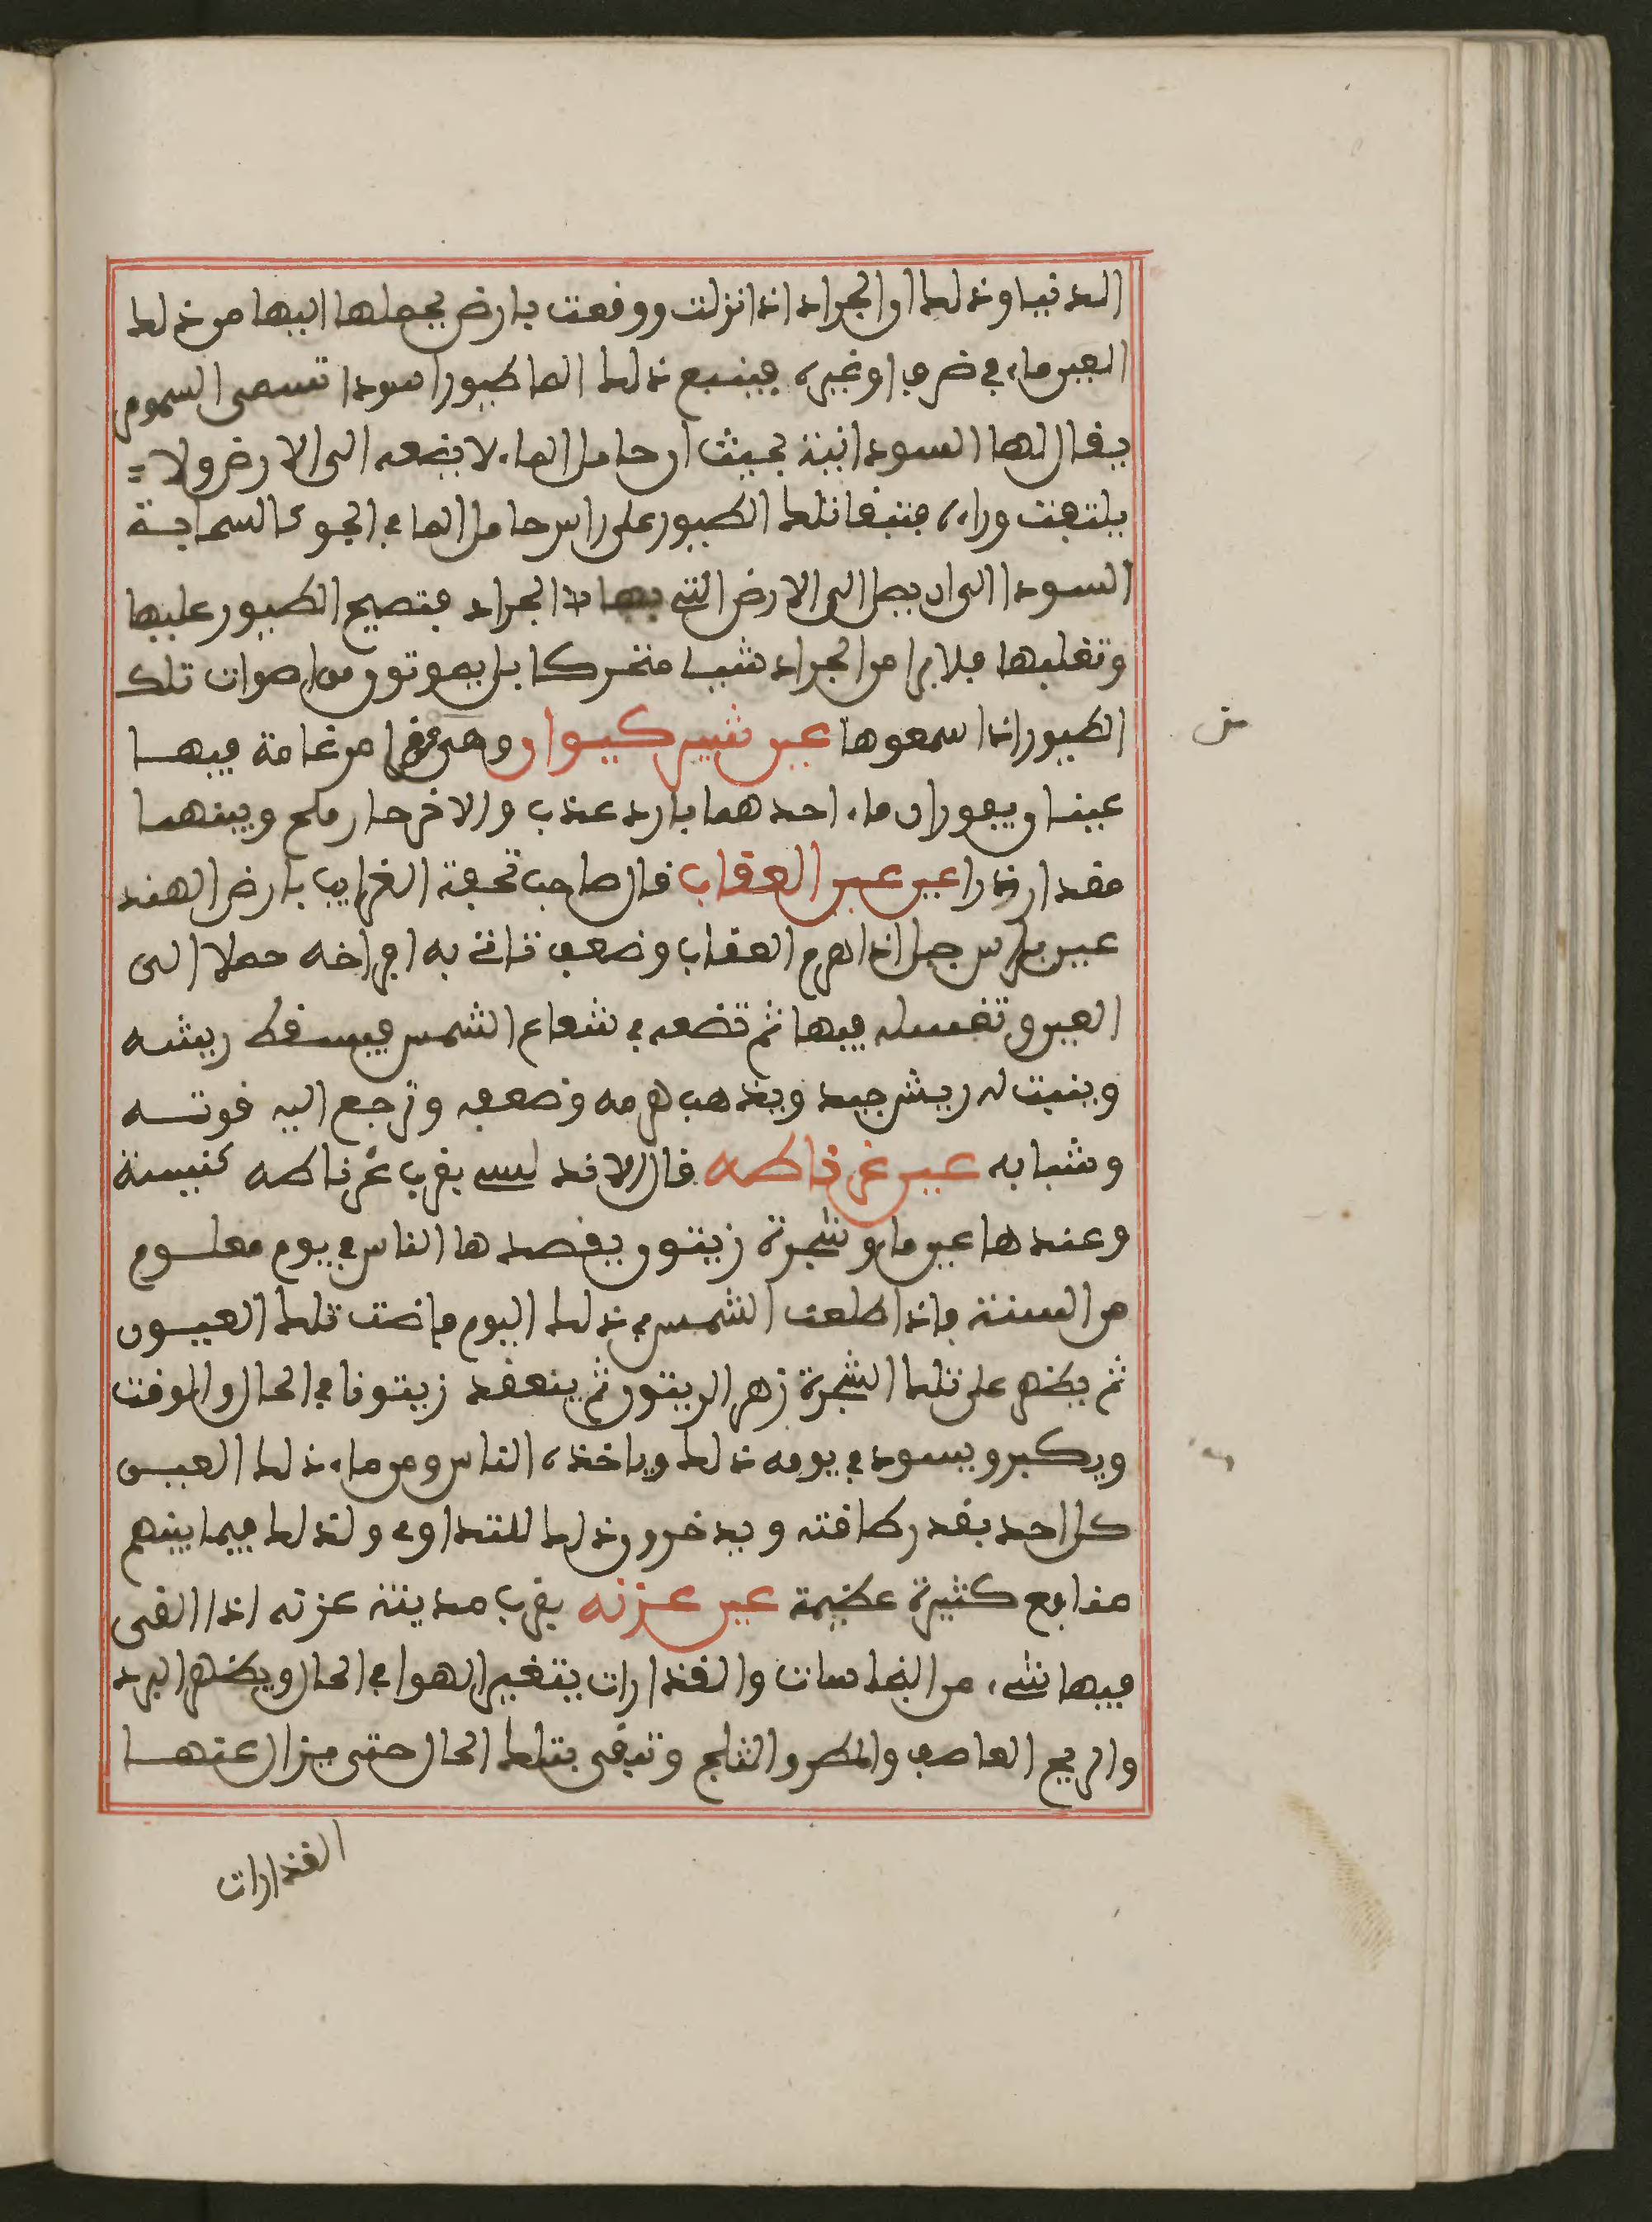 الدنيا وذلك ان الجراد اذا نزلت ووقعت بارض يجعلها اليها من ذلك
العين ماء في ضرف او غيره فيتبع ذلك الما طيورا سودا تسمى السموم
يقال لها السودانية بحيث ان حامل الماء لا يضعه الى الارض ولا
يلتفت وراءه فتبقا تلك الطيور على راس حامل الما في الجو كالسحابة
السودا الى ان يصل الى الارض التي بها الجراد فتصيح الطيور عليها
وتقلبها فلا يرا من الجراد شيا متحركا بل يموتون من اصوات تلك
الطيور اذا سمعوها عين شير كيوان وهي من امرغامة فيها
عينان يفوران ماء احدهما بارد عذب والاخر حار ملح وبينهما
مقدار ذراعين عين العقاب قال صاحب تحفة الغرايب بارض الهند
عين براس جبل اذا هرم العقاب وضعف تاتي به افراخه حملا الى
العين وتغسله فيها ثم تضعه في شعاع الشمس فيسقط ريشه
وينبت له ريش جيد ويذهب هرمه وضعفه وترجع اليه قوته
وشبابه عين غرناطه قال الاندلسي بقرب غرناطه كنيسة
وعندها عين ماء وشجرة زيتون يقصدها الناس في يوم معلوم
من السنة فاذا طلعت الشمس في ذلك اليوم فاضت تلك العيون
ثم يظهر على تلك الشجرة زهر الزيتون ثم ينعقد زيتونا في الحال والوقت
ويكبر ويسود في يومه ذلك وياخذه الناس ومن ماء ذلك العين
كل احد بقدر طاقته ويدخرون ذلك للتداوي ولذلك فيما بينهم
منافع كثيرة عظيمة عين عزنه بقرب مدينة عزنه اذا القى
فيها شيء من النجاسات والقذارات يتغير الهوا في الحال ويظهر البرد
والريح العاصف والمطر والثلج وتبقى بتلك الحال حتى يزال عنها
القذارات